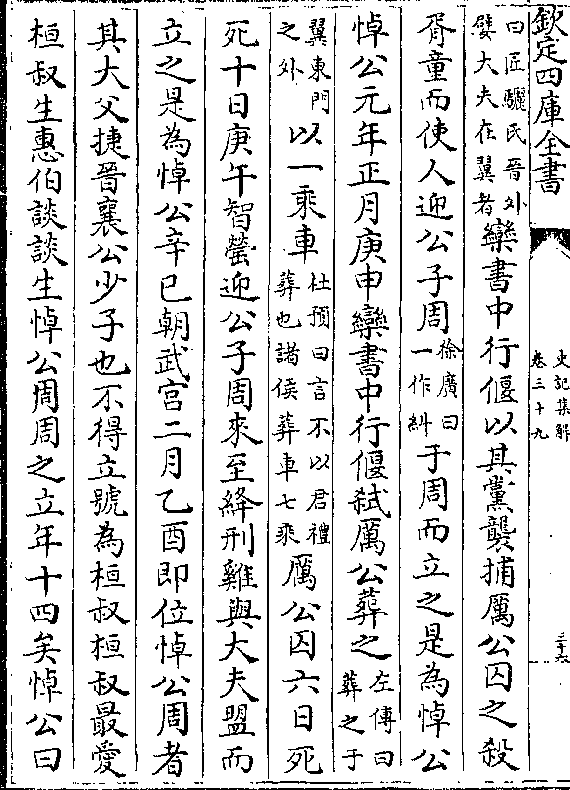 欽定四庫全書
史記集解
卷三十九
三十六
曰匠驪氏晉外
嬖大夫在翼者
欒書中行偃以其黨襲捕厲公囚之殺
胥童而使人迎公子周
徐廣曰
一作糾
于周而立之是為悼公
悼公元年正月庚申欒書中行偃弑厲公葬之
左傳曰
葬之于
翼東門
之外
以一乘車
杜預曰言不以君禮
葬也諸侯葬車七乘
厲公囚六日死
死十日庚午智罃迎公子周來至絳刑雞與大夫盟而
立之是為悼公辛巳朝武宮二月乙酉即位悼公周者
其大父捷晉襄公少子也不得立號為桓叔桓叔最愛
桓叔生惠伯談談生悼公周周之立年十四矣悼公曰